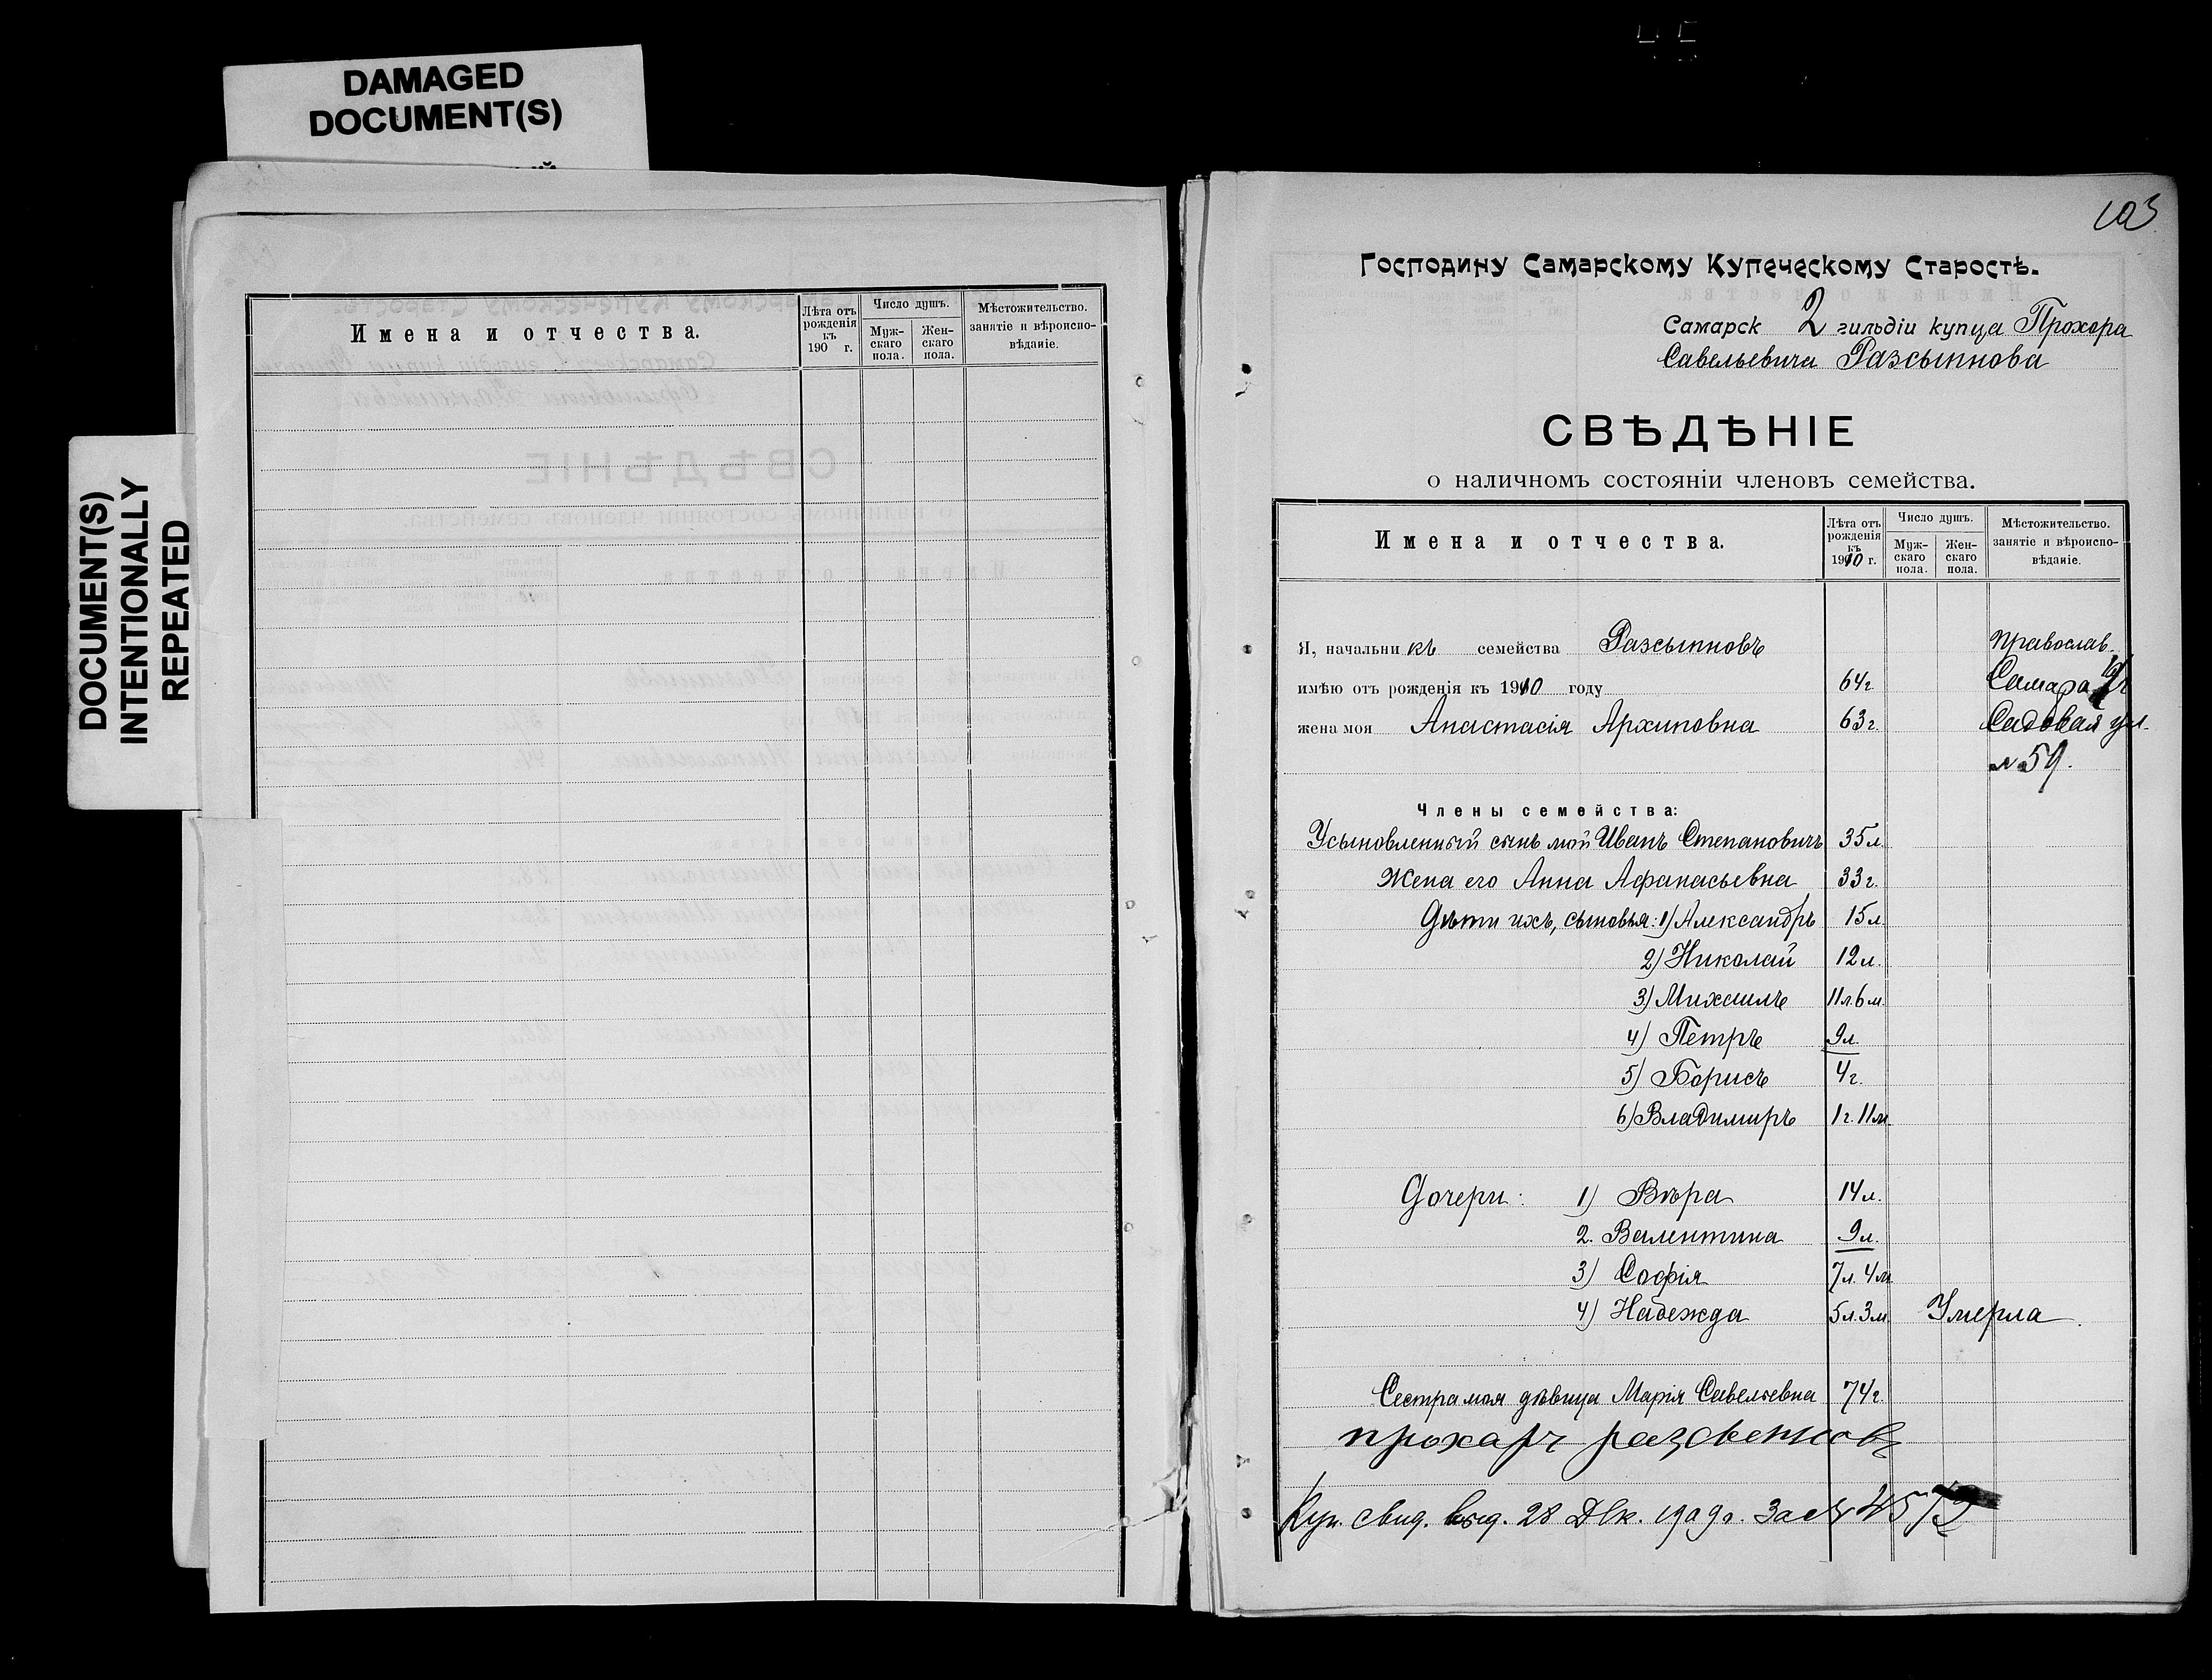 DAMAGED
DOCUMENT(S)
DOCUMENT(S)
INTENTIONALLY
REPEATED
Имена и отчества.
Лѣта отъ рожденія къ 190 г.
Число душъ.
Муж-скаго пола.
Жен-скаго пола.
Мѣстожительство. занятіе и вѣроиспо-вѣданіе.
103
Господину Самарскому Купеческому Старостѣ.
Самарск 2 гильдіи купца Прохора
Савельевича Разсыпнова
СВѢДѢНІЕ
о наличномъ состояніи членовъ семейства.
Имена и отчества.
Лѣта отъ рожденія къ 1910 г.
Число душъ.
Муж-скаго пола.
Жен-скаго пола.
Мѣстожительство. занятіе и вѣроиспо-вѣданіе.
Я, начальникъ семейства Разсыпновъ Православ.
имѣю отъ рожденія къ 1910 году 64г Самара
жена моя Анастасія Архиповна 63г. Садовая ул.
№59.
Члены семейства:
Усыновленный сынъ мой Иванъ Степановичъ 35л.
Жена его Анна Афанасьевна 33г.
Дѣти ихъ, сыновья: 1) Александръ 15л.
2) Николай 12л.
3) Михаилъ 11л.6м.
4) Петръ 9л.
5) Борисъ 4г.
6) Владимиръ 1г.11м.
Дочери: 1) Вѣра 14л.
2. Валентина 9л.
3) Софія 7л.4м.
4) Надежда 5л.3м. Умерла.
Сестра моя дѣвица Марія Савельевна 74г.
прохаръ
Куп. свид. выд. 28 Дек. 1909г. За №